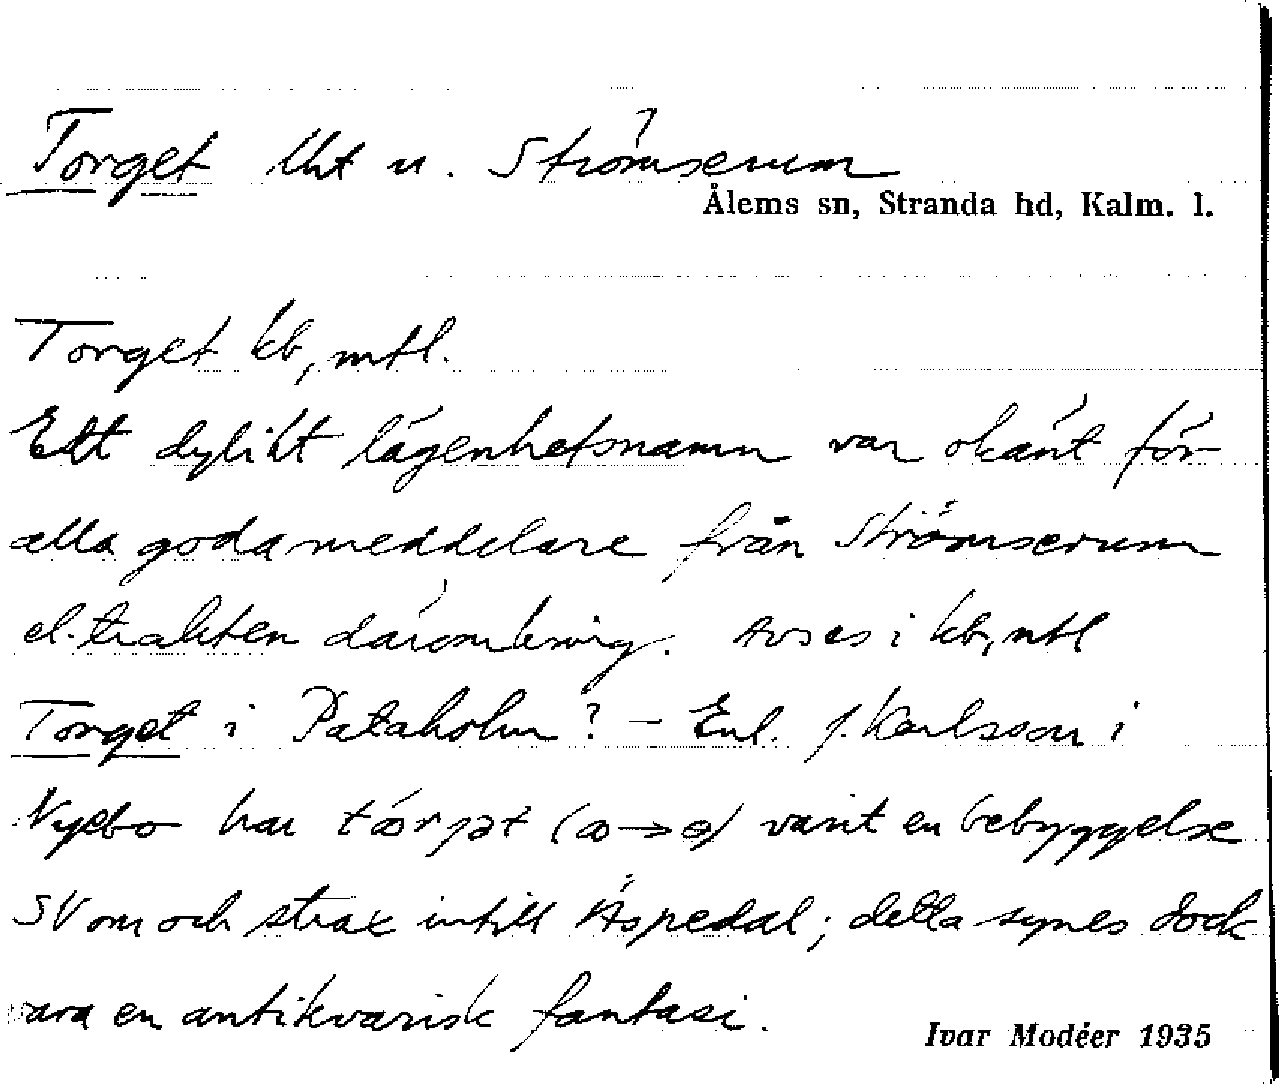 Torget lht u. Strömserum
Ålems sn, Stranda hd, Kalm. l.
Torget kb, mtl.
Ett dylikt lägenhetsnamn var okänt för
alla goda meddelare från Strömserum
el. trakten däromkring. Avses i kb, mtl
Torget i Pataholm? – Enl. J. Karlsson i
Nyebo har varit en bebyggelse
SV om och strax intill Äspedal; detta synes dock
vara en antikvarisk fantasi.
Ivar Modéer 1935